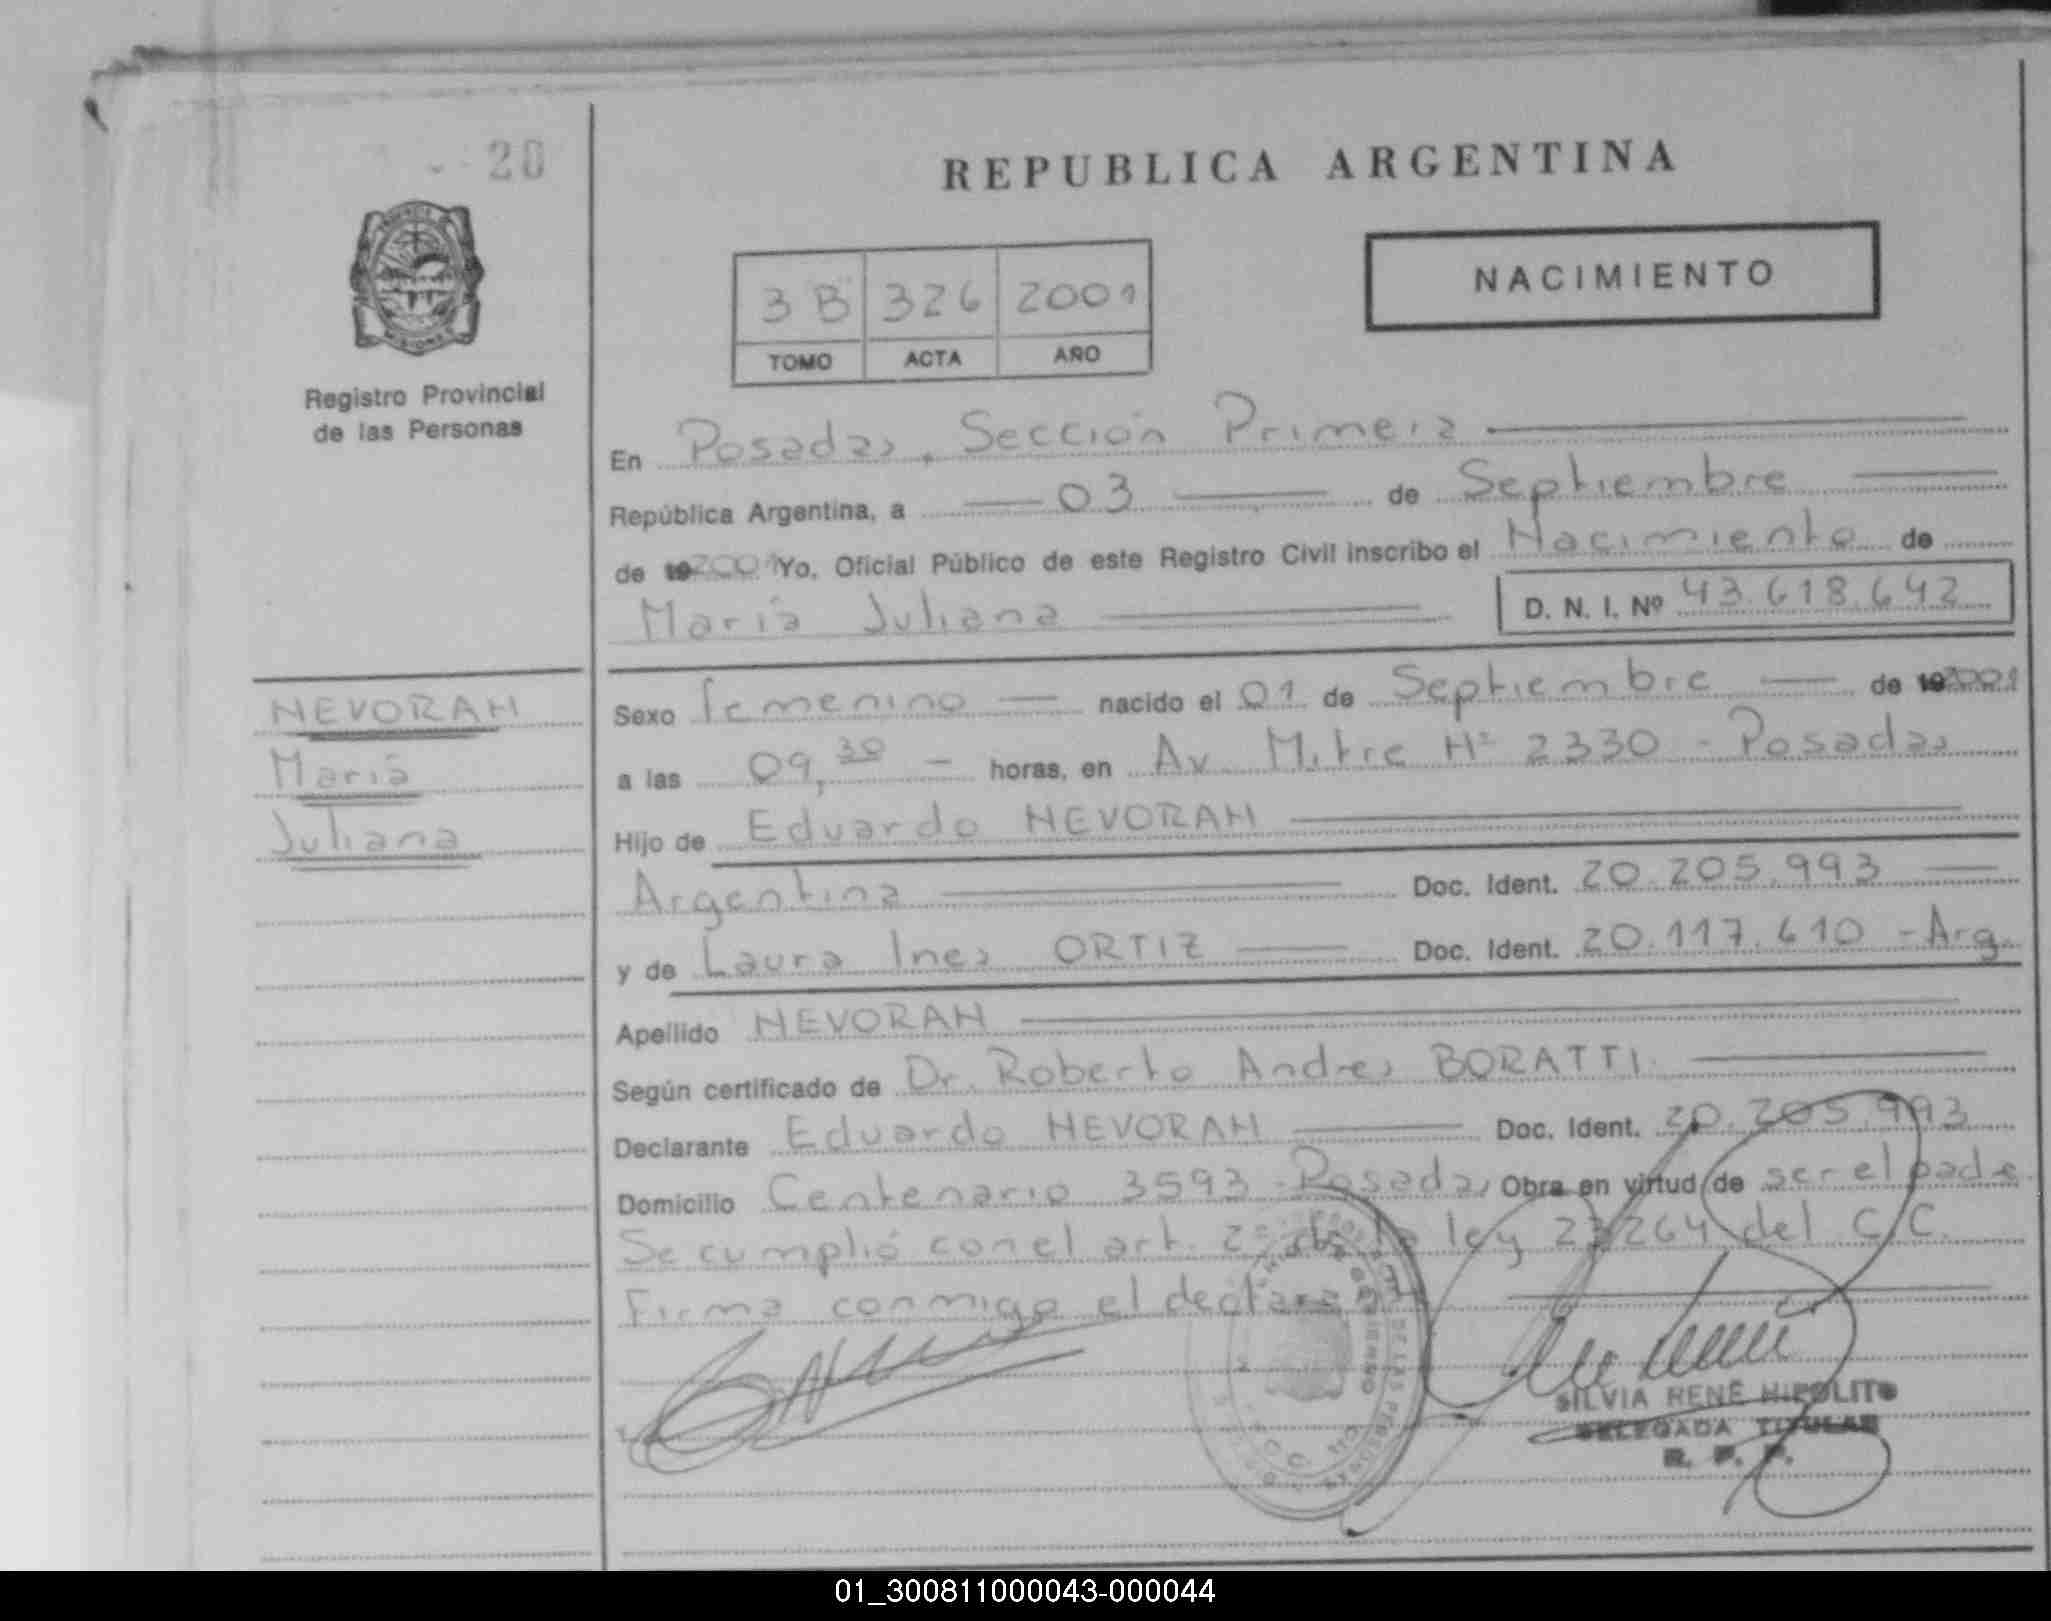 20
REPUBLICA ARGENTINA
NACIMIENTO
3 B 326 2001
TOMO ACTA AÑO
Registro Provincial
de las Personas
En Posadas, Sección Primera
República Argentina, a 03 de Septiembre
de 19 2001 Yo, Oficial Público de este Registro Civil inscribo el Nacimiento de
María Juliana D. N. I. Nº 43.618.642
NEVORAN
María
Juliana
Sexo femenino nacido el 01 de Septiembre de 19 2001
a las 09,30 horas, en Av. Mitre Nº 2330 - Posadas
Hijo de Eduardo NEVORAN
Argentina Doc. Ident. 20.205.993
y de Laura Ines ORTIZ Doc. Ident. 20.117.610 - Arg.
Apellido NEVORAN
Según certificado de Dr. Roberto Andres BORATTI
Declarante Eduardo NEVORAN Doc. Ident. 20.205.993
Domicilio Centenario 3593 - Posadas Obra en virtud de ser el padre
Se cumplió con el art. 2º de la ley 23264 del C.C.
Firma conmigo el declarante
SILVIA RENE HIPOLITO
DELEGADA TITULAR
R. P. P.
01_300811000043-000044